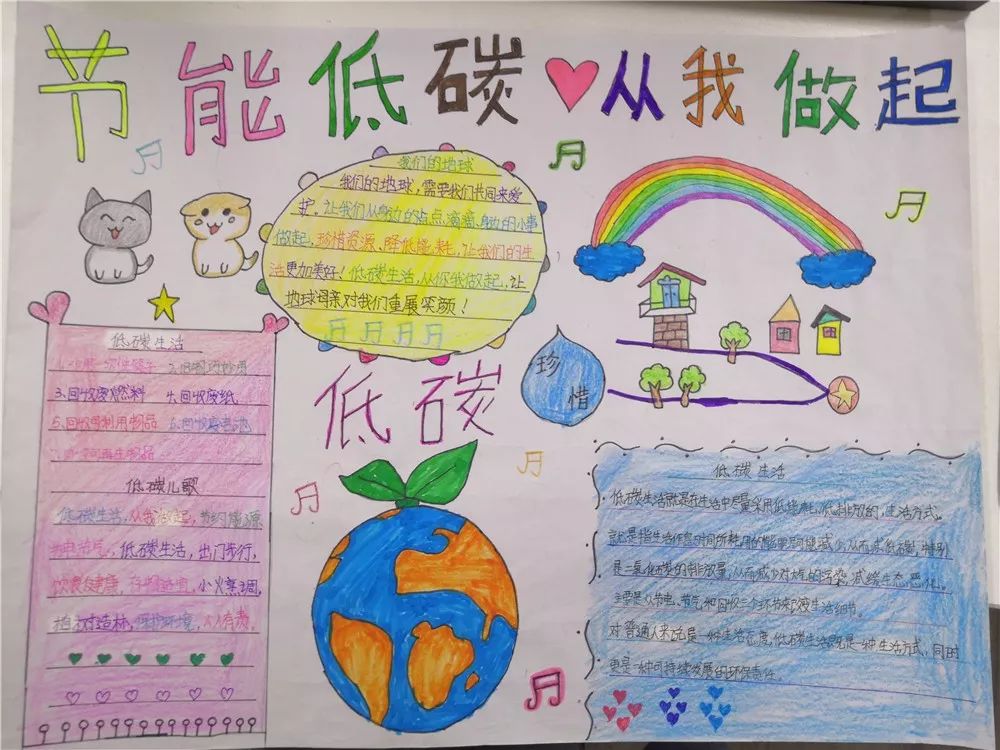 节能低碳从我做起
我们的地球
我们的地球,需要我们共同来爱
护。让我们从身边的点点滴滴、身边的小事
做起,珍惜资源、降低能耗,让我们的生
活更加美好!低碳生活,从你我做起,让
地球母亲对我们重展笑颜!
低碳
珍
惜
低碳生活
3.回收废燃料 4.回收废纸
5.回收再利用物品 6.回收废
低碳儿歌
低碳生活,从我做起,节约能源
节电节气。低碳生活,出门步行,
饮食健康,存 小火
植树造林,保护环境,人人有责。
低碳生活
低碳生活就是在生活中尽量采用低能耗、低排放的,生活方式。
就是指生活作息时间所耗用的能量要减少,从而减低碳,特别
是二氧化碳的排放量,从而减少对大气的污染,减缓生态恶化。
主要是从节电、节气和回收三个环节来改变生活细节。
对普通人来说是一种生活态度,低碳生活既是一种生活方式,同时
更是一种可持续发展的环保责任。